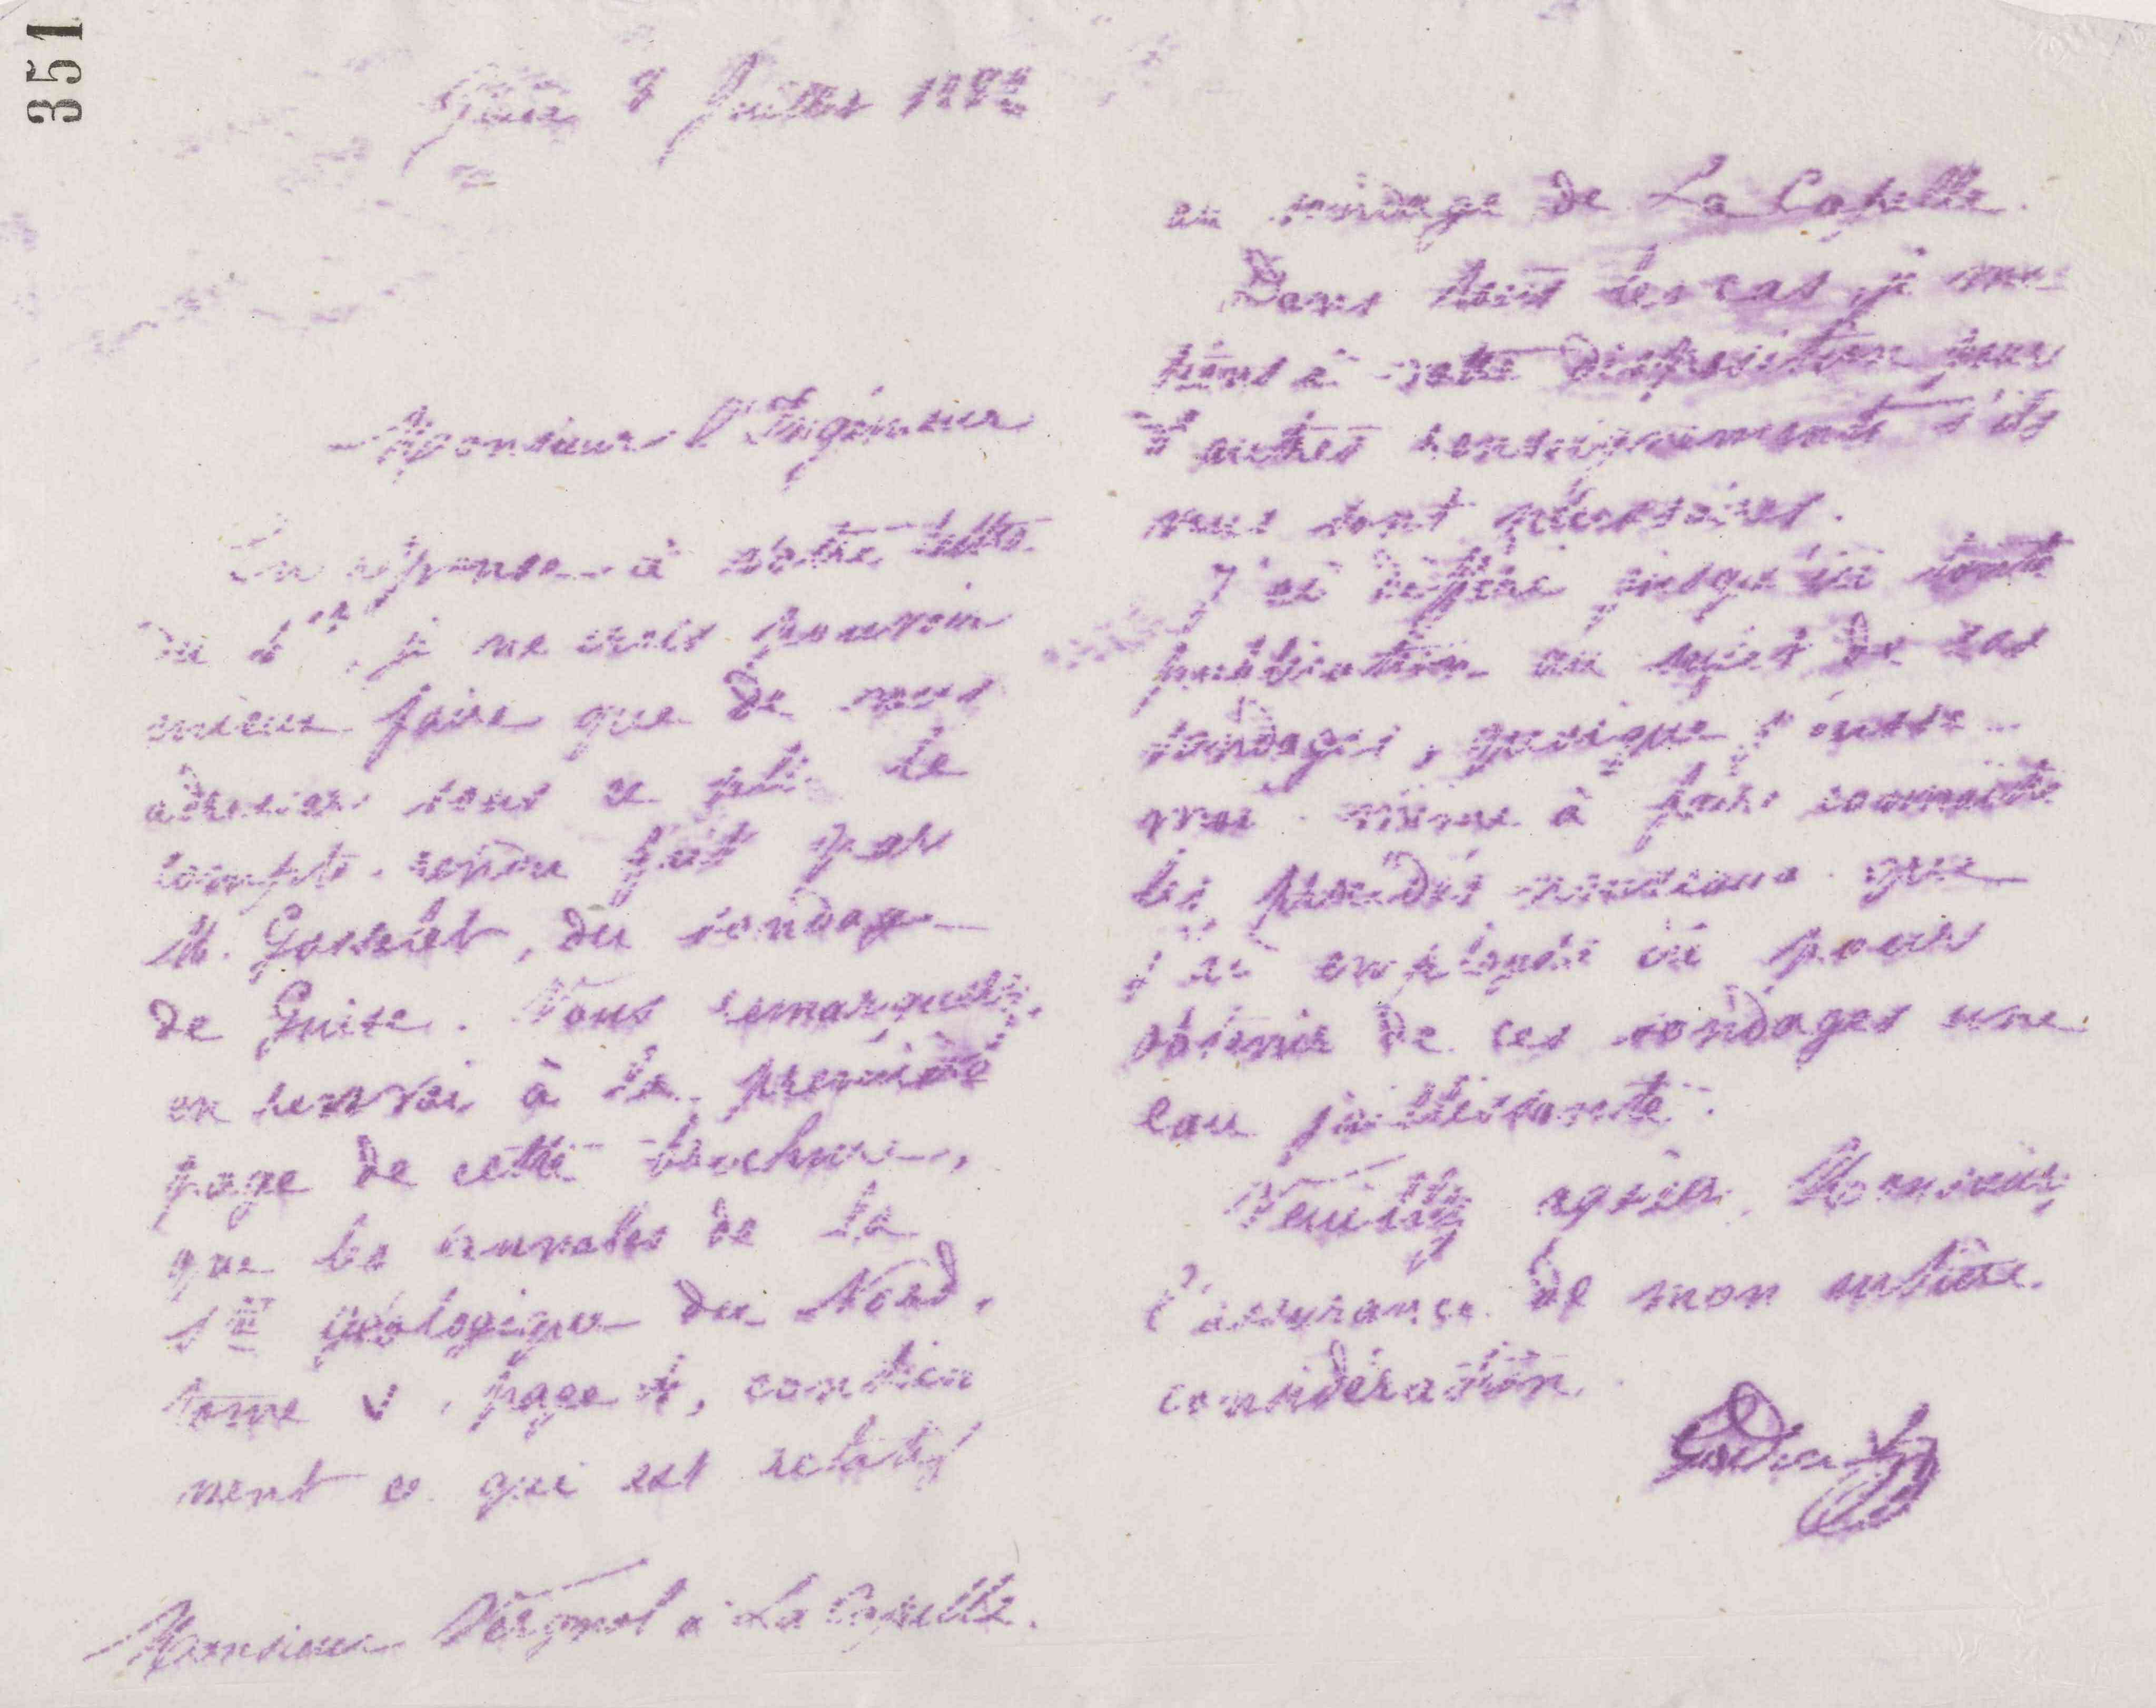 351
Guise 8 Juillet 188
Monsieur l'Ingénieur
En réponse à votre lettre
du 1er, je ne crois pouvoir
mieux faire que de vous
adresser sous ce pli le
compte-rendu fait par
M. Gosselet, du sondage
de Guise. Vous remarquerez,
en renvoi à la première
page de cette brochure,
que les annales de la
Sté géologique du Nord,
tome V, page, contien
nent ce qui est relatif
Monsieur Vergnol à La Capelle.
au sondage de La Capelle.
Dans tous les cas, je me
tiens à votre disposition pour
d'autres renseignements s'ils
vous sont nécessaires.
J'ai différé jusqu'ici toute
publication au sujet de ces
sondages, quoique j'eusse
moi-même à faire connaître
les procédés nouveaux que
j'ai employés ici pour
obtenir de ces sondages une
eau jaillissante.
Veuillez agréer, Monsieur,
l'assurance de mon entière
considération.
Godin